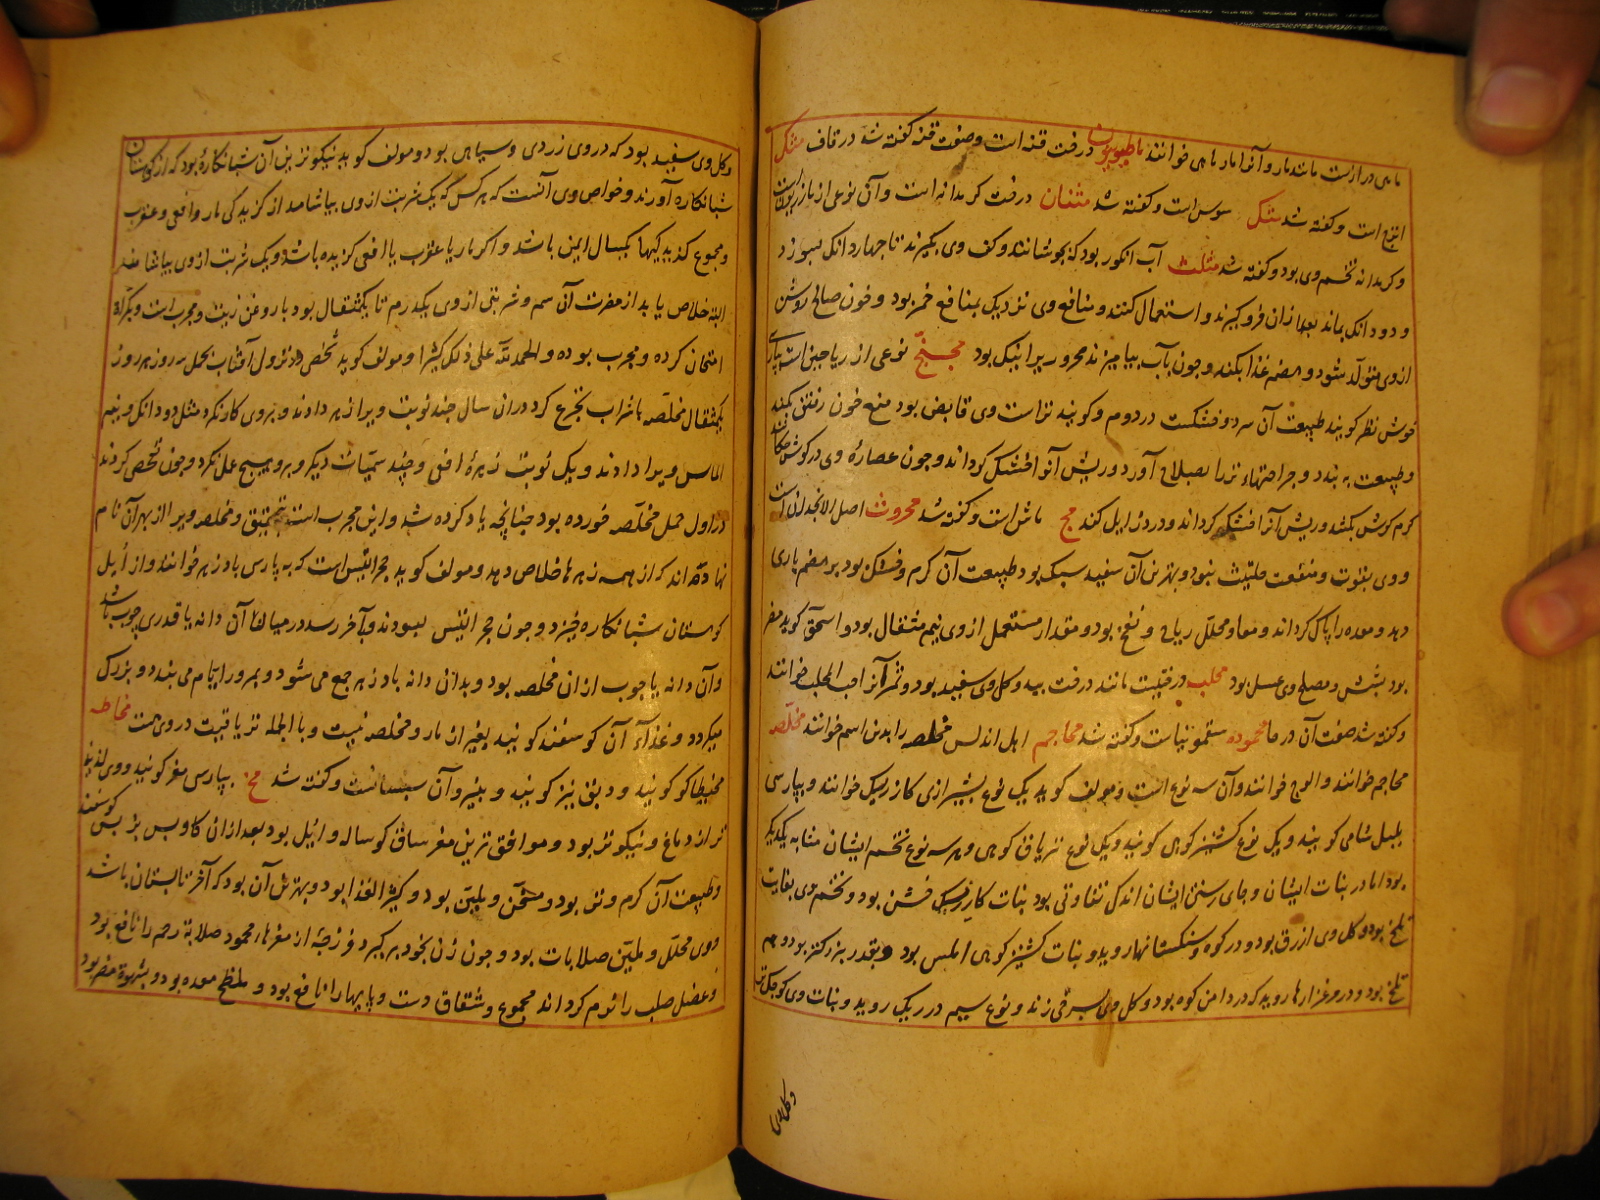 ماهی درازست مانند مار و آنرا مار ماهی خوانند ماطیونیون درخت قنه است و صفت قنه گفته شد در قاف متک
اترج است و گفته شد متک سوس است و گفته شد مثنان درخت کرمدانه است و آن نوعی از مازریون است
و کرمدانه تخم وی بود و گفته شد مثلث آب انگور بود که بجوشانند و کف وی بگیرند تا چهار دانک بسوزد
و دو دانک بماند بعد ازان فرو گیرند و استعمال کنند و منافع وی نزدیک بمنافع خمر بود و خون صالح روشن
ازوی متولد شود و هضم غذا بکند و چون بآب بیامیزند محرور را نیک بود نوعی از ریاحین است بپارسی
خوش نظر گویند طبیعت آن سرد و خشکست در دوم و گویند ترست وی قابض بود منع خون رفتن بکند
و طبیعت به بندد و جراحتهاء تر را بصلاح آورد و ریش آنرا خشک گرداند و چون عصاره وی در گوش چکانند
کرم گوش بکشد و ریش آنرا خشک گرداند و درد زایل کند مج ماش است و گفته شد محروث اصل الانجدان است
و وی بقوت و منفعت حلتیت نبود و بهترین آن سفید سبک بود طبیعت آن گرم و خشک بود بر هضم یاری
دهد و معده را پاک گرداند و معا و محلل ریاح و نفخ بود و مقدار مستعمل ازوی نیم مثقال بود و اسحق گوید مضر
بود بشش و مصلح وی عسل بود محلب درختیست مانند درخت بید و گل وی سفید بود و ثمر آنرا حب المحلب خوانند
و گفته شد صفت آن در حا محموده سقمونیاست و گفته شد محاجم اهل اندلس مخلصه را بدین اسم خوانند مخلصه
محاجم خوانند و خوانند و آن سه نوع است و مولف گوید یک نوع بشیرازی کازرسک خوانند و بپارسی
بلبل شامی گویند و یک نوع کشنیز کوهی گویند و یک نوع تریاق کوهی و هر سه نوع تخم ایشان مشابه یکدیگر
بود اما در نبات ایشان و جای رستن ایشان اندک تفاوتی بود نبات کازرسک خشن بود و تخم وی بغایت
تلخ بود و گل وی ازرق بود و در کوه و سنگستانها روید و نبات کشنیز کوهی املس بود و بقدر بزرگتر بود و هم
تلخ بود و در مرغزارها روید که در دامن کوه بود و گل وی بسرخی زند و نوع سیم در ریک روید و نبات وی کوچک تر
و گل وی
و گل وی سفید بود که دروی زردی و سیاهی بود و مولف گوید نیکوترین آن شبانکاره بود که از کوهستان
شبانکاره آورند و خواص وی آنست که هر کس که یک شربت ازوی بیاشامد از گزیدگی مار و افعی و عقرب
و مجموع گزیدگیها یکسال ایمن باشد و اگر مار یا عقرب یا افعی گزیده باشد و یک شربت ازوی بیاشامند
البته خلاص یابد از مضرت آن سم و شربتی ازوی یکدرم تا یکمثقال بود با روغن زیت و مجربست و بکرات
امتحان کرده و مجرب بوده و الحمد لله علی ذلک کثیرا و مولف گوید شخصی در نزول آفتاب بحمل سه روز هر روز
یکمثقال مخلصه با شراب تجرع کرد دران سال چند نوبت ویرا زهر دادند و بروی کار نکرد مثل دو دانک و نیم
الماس ویرا دادند و یک نوبت زهرهٔ افعی و چند سمیات دیگر و برو هیچ عمل نکرد و چون تفحص کردند
در اول حمل مخلصه خورده بود چنانچه یاد کرده شد و این مجرب است بتحقیق و مخلصه ویرا از بهر آن نام
نهاده اند که از همه زهرها خلاص دهد و مولف گوید حجر التیس است که به پارسی بادزهر خوانند و از ایل
کوهستان شبانکاره خیزد و چون حجر التیس بسودند و بآخر رسد در میان آن دانه یا قدری چوب باشد
و آن دانه یا چوب ازان مخلصه بود و بدان دانه بادزهر جمع می شود و بمرور ایام می بندد و بزرک
میگردد و غذاء آن گوسفند گویند بغیر از مار و مخلصه نیست و بالجمله تریاقیت دروی هست مخاطه
مخیطا گویند و دبق نیز گویند و آن سبستانست و گفته شد مخ بپارسی مغز گویند و وی لذیذ
تر از دماغ و نیکوتر بود و موافق ترین مغز ساق گوساله و ایل بود بعد ازان گاو پس بز پس گوسفند
و طبیعت آن گرم و تر بود و مسخن و ملین بود و کثیر الغذا بود و بهترش آن بود که آخر تابستان باشد
و وی محلل و ملین صلابات بود و چون زن بخود برگیرد فرزجه از مغزهاء محمود صلابة رحم را نافع بود
و عضل صلب را نرم گرداند مجموع و شقاق دست و پایها را نافع بود و ملطخ معده بود و بشهوة مضر بود